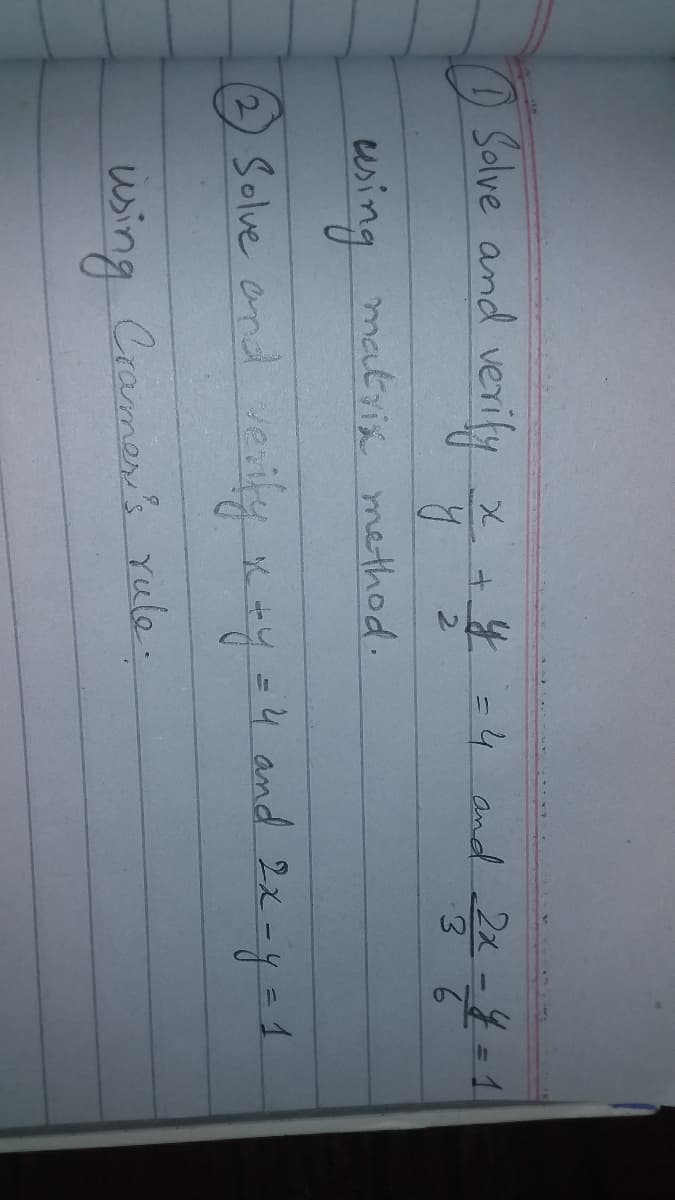 ① Solve and verify x/y + y/2 = 4 and 2x/3 - y/6 = 1
using matrix method.
② Solve and verify x + y = 4 and 2x - y = 1
using Cramer's rule.